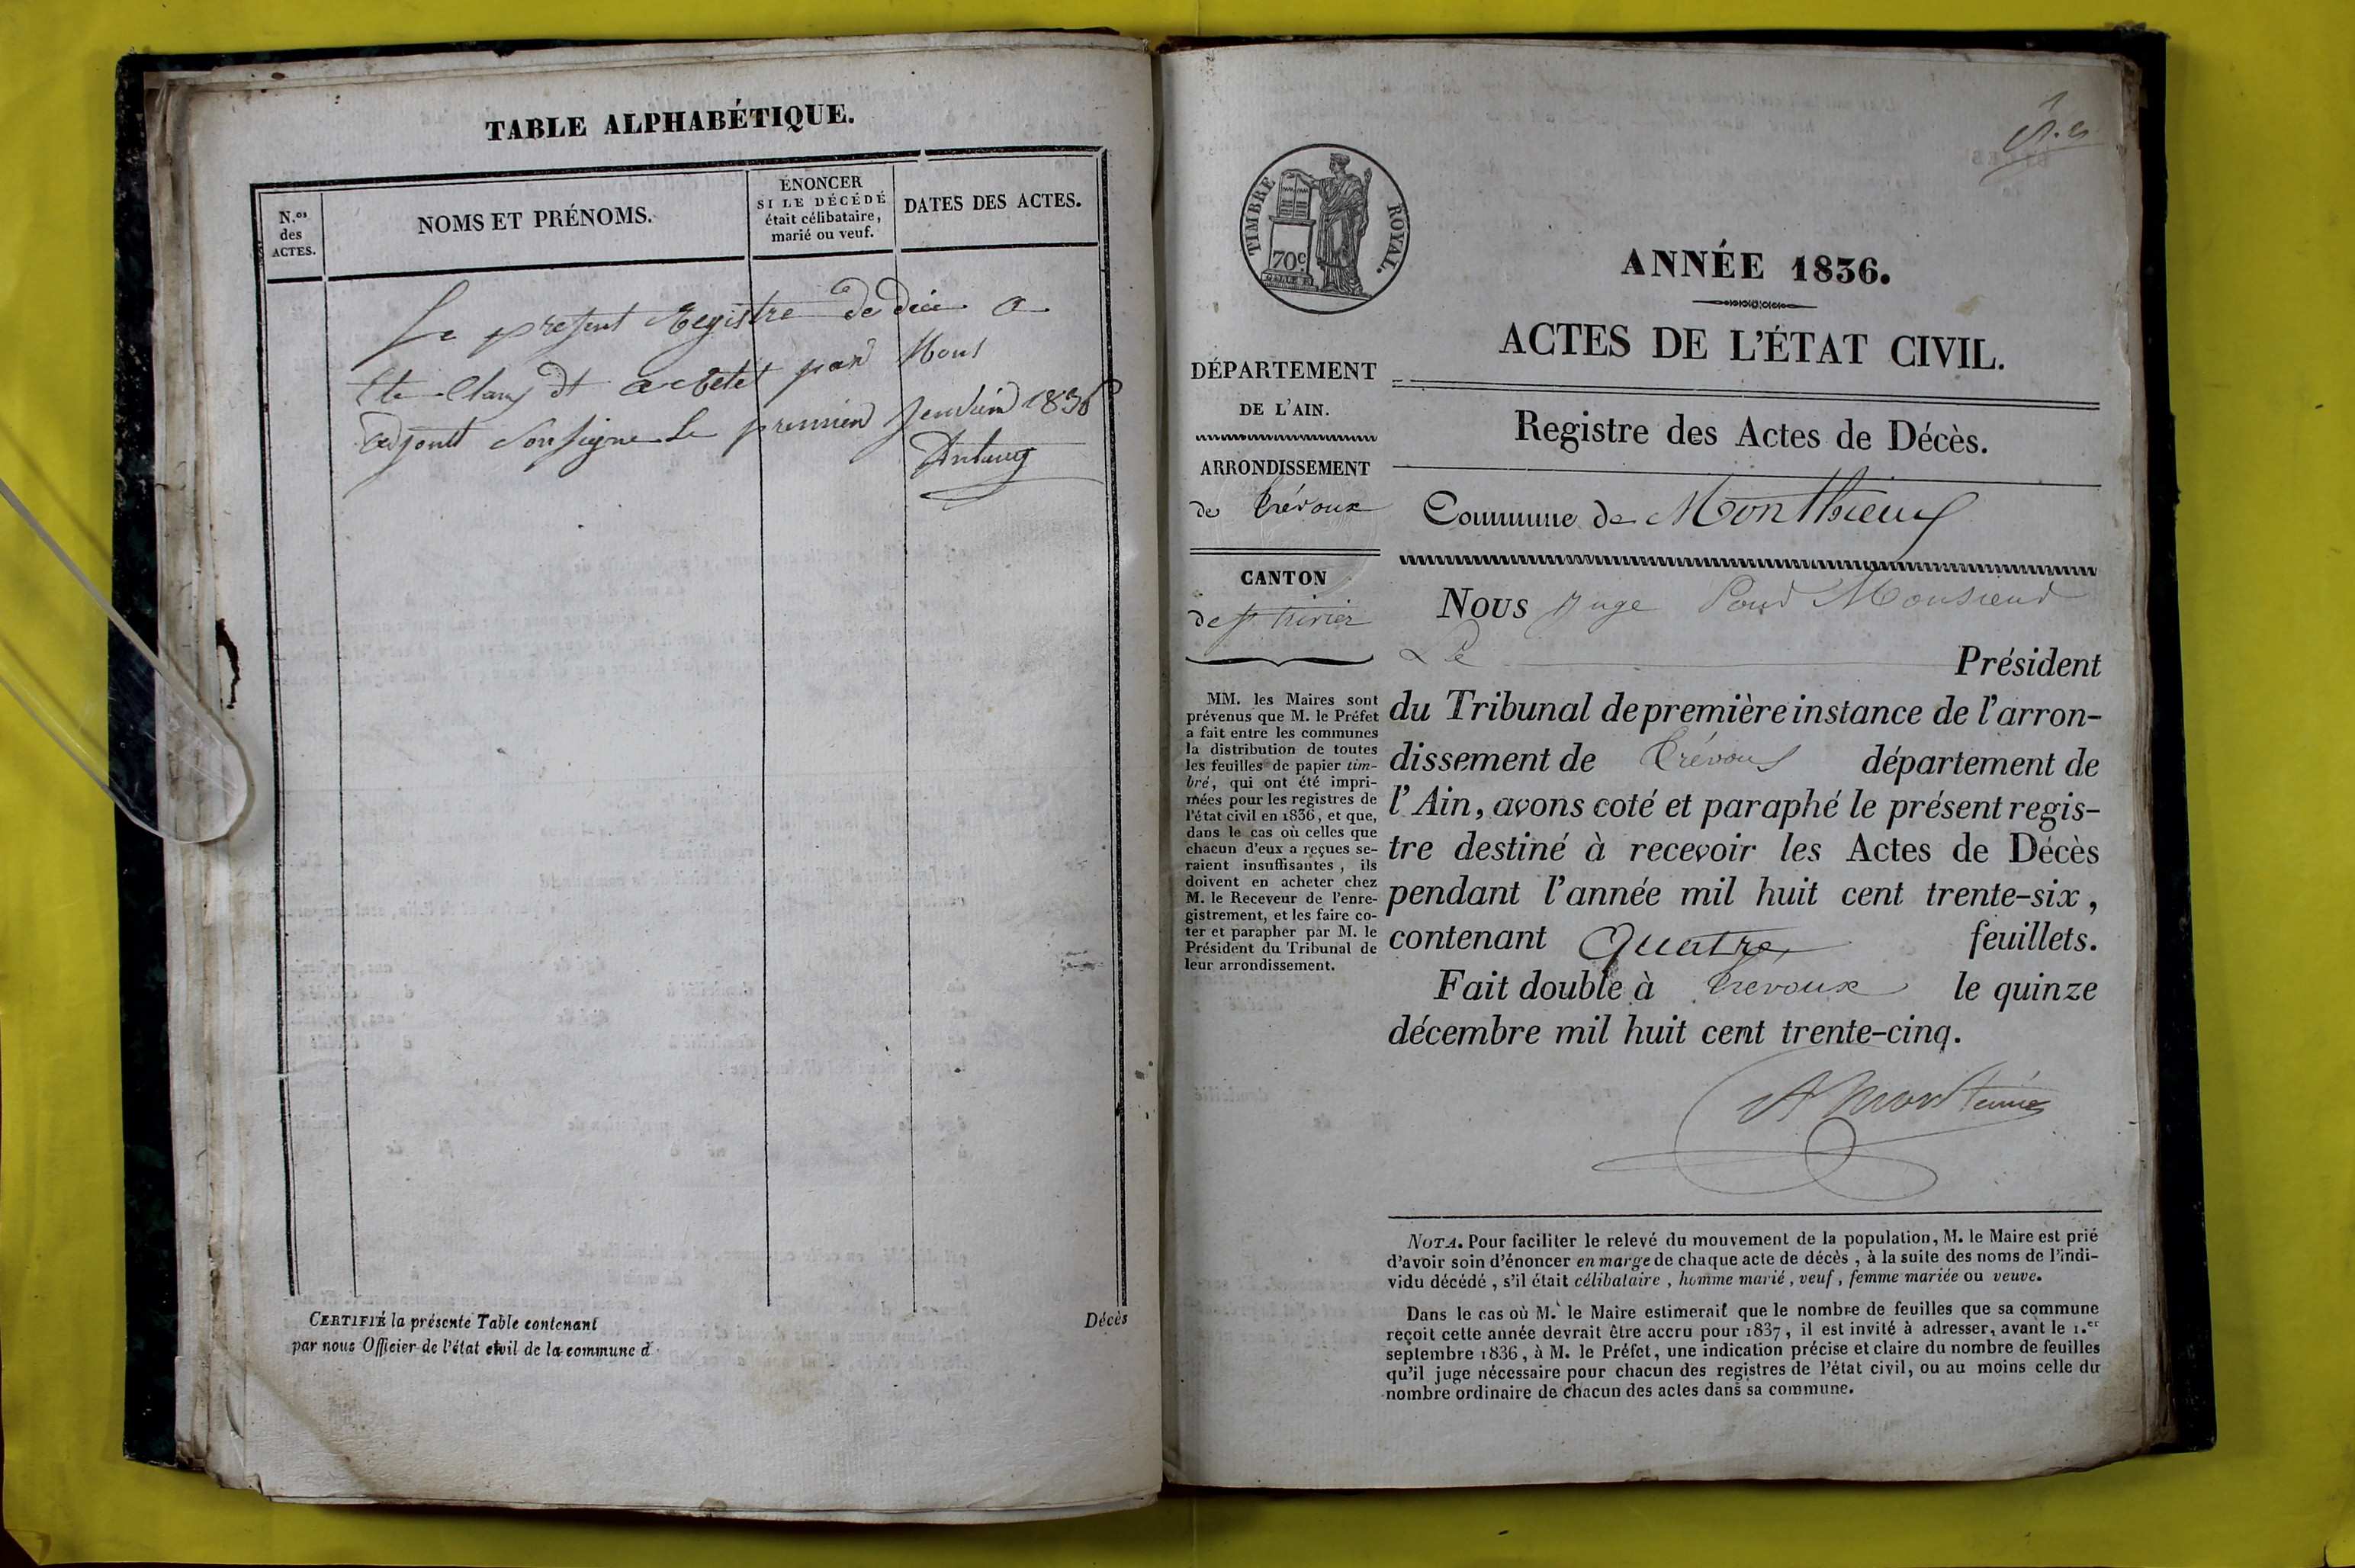 TABLE ALPHABÉTIQUE.
N.os
des
ACTES.
NOMS ET PRÉNOMS.
ÉNONCER
SI LE DÉCÉDÉ
était célibataire,
marié ou veuf.
DATES DES ACTES.
Le present Registre de a
par Nous
adjoint Sousigne Le premier 1836
CERTIFIÉ la présente Table contenant
Décès
par nous Officier de l'état civil de la commune d
TIMBRE ROYAL.
70c
ANNÉE 1836.
ACTES DE L'ÉTAT CIVIL.
Registre des Actes de Décès.
DÉPARTEMENT
DE L'AIN.
ARRONDISSEMENT
de Trévoux
CANTON
de St Trivier
MM. les Maires sont
prévenus que M. le Préfet
a fait entre les communes
la distribution de toutes
les feuilles de papier tim-
bré, qui ont été impri-
mées pour les registres de
l'état civil en 1836, et que,
dans le cas où celles que
chacun d'eux a reçues se-
raient insuffisantes, ils
doivent en acheter chez
M. le Receveur de l'enre-
gistrement, et les faire co-
ter et parapher par M. le
Président du Tribunal de
leur arrondissement.
Commune de Monthieux
Nous juge Pour Monsieur
Le Président
du Tribunal de première instance de l'arron-
dissement de Trévoux département de
l'Ain, avons coté et paraphé le présent regis-
tre destiné à recevoir les Actes de Décès
pendant l'année mil huit cent trente-six,
contenant Quatre feuillets.
Fait double à Trevoux le quinze
décembre mil huit cent trente-cinq.
NOTA. Pour faciliter le relevé du mouvement de la population, M. le Maire est prié
d'avoir soin d'énoncer en marge de chaque acte de décès, à la suite des noms de l'indi-
vidu décédé, s'il était célibataire, homme marié, veuf, femme mariée ou veuve.
Dans le cas où M. le Maire estimerait que le nombre de feuilles que sa commune
reçoit cette année devrait être accru pour 1837, il est invité à adresser, avant le 1.er
septembre 1836, à M. le Préfet, une indication précise et claire du nombre de feuilles
qu'il juge nécessaire pour chacun des registres de l'état civil, ou au moins celle du
nombre ordinaire de chacun des actes dans sa commune.